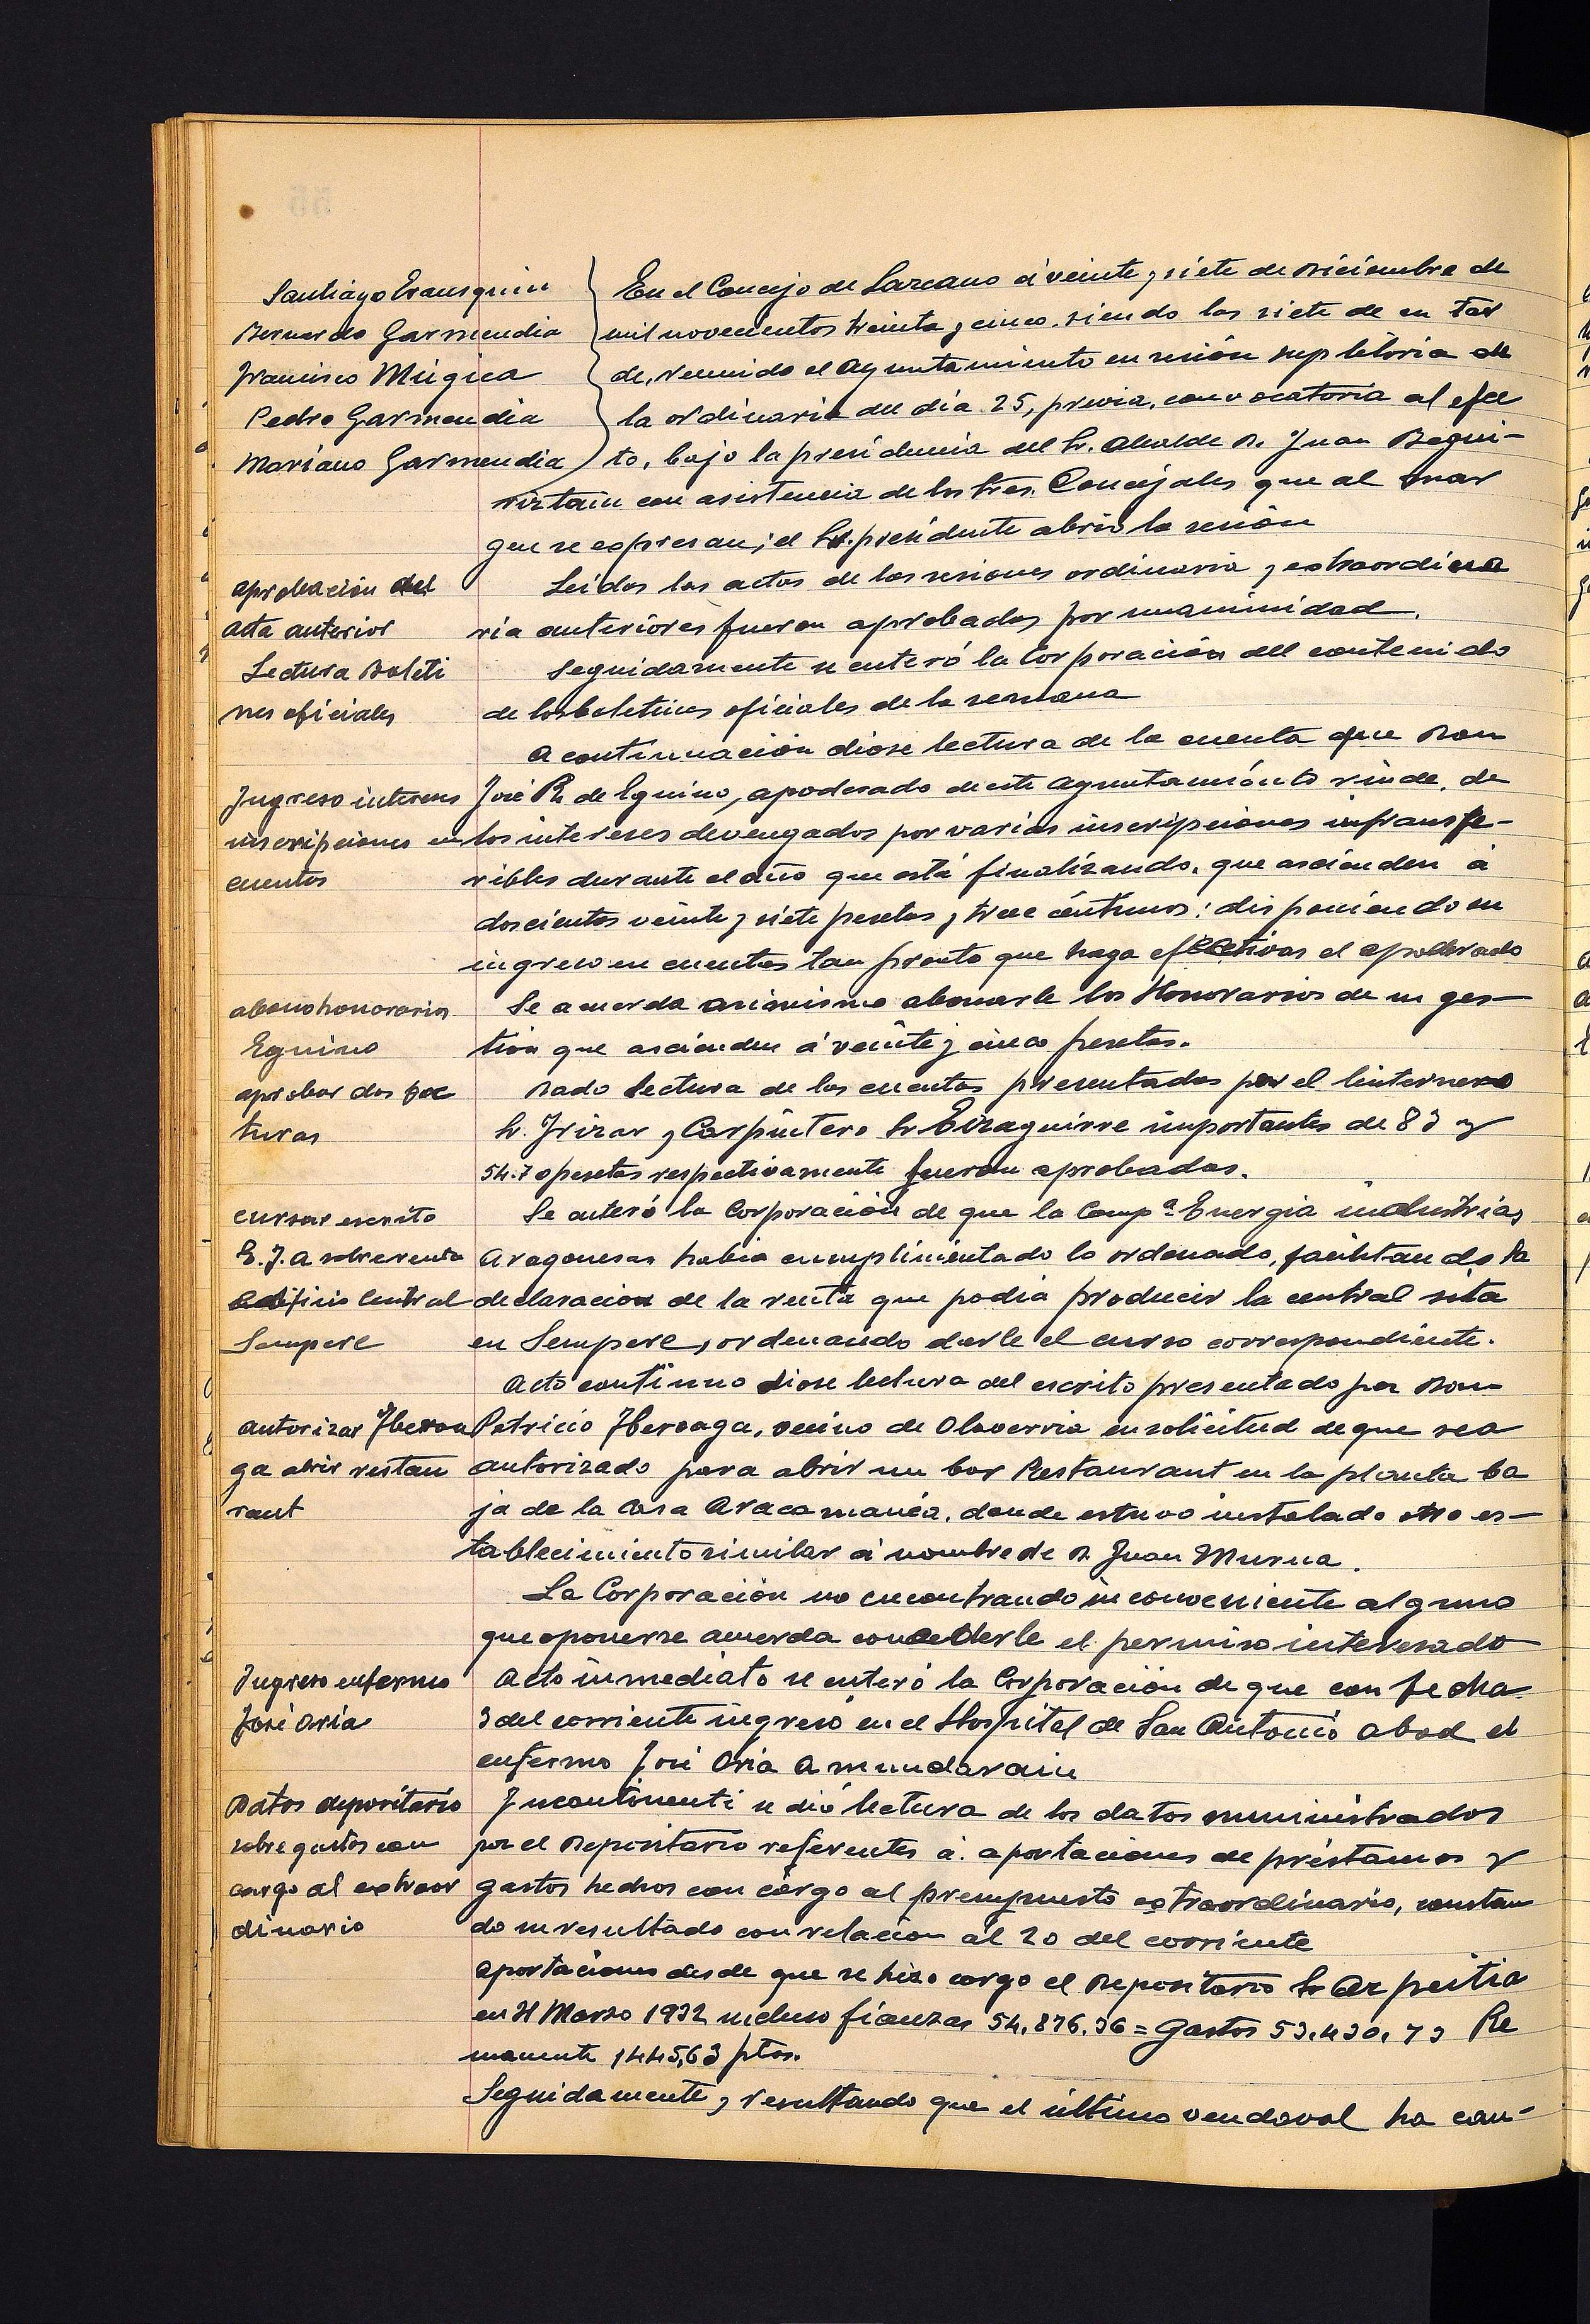 Santiago Irausquin
Bernardo Garmendia
Francisco Múgica
Pedro Garmendia
Mariano Garmendia
En el Concejo de Lazcano á veinte y siete de Diciembre de
mil novecientos treinta y cinco, siendo las siete de su tar
de, reunido el Ayuntamiento en sesión supletoria de
la ordinaria del dia 25, previa convocatoria al efec
to, bajo la presidencia del Sr. Alcalde D. Juan Begui-
riztain con asistencia de los Sres. Concejales que al mar
gen se expresan; el Sr. presidente abrió la sesión
aprobación del
acta anterior
Leidas las actas de las sesiones ordinaria y extraordina
ria anteriores fueron aprobadas por unanimidad.
Lectura Boleti
nes oficiales
Seguidamente se enteró la Corporación del contenido
de los boletines oficiales de la semana
A continuación diose lectura de la cuenta que Don
Ingreso intereses
inscripciones en
cuentas
José Rn de Eguino, apoderado de este Ayuntamiento rinde, de
los intereses devengados por varias inscripciones intransfe-
ribles durante el año que está finalizando, que ascienden á
doscientas veinte y siete pesetas y trece céntimos: disponiendo su
ingreso en cuentas tan pronto que haga efectivas el apoderado
abono honorarios
Eguino
Se acuerda asimismo abonarle los Honorarios de su ges-
tión que ascienden á veinte y cinco pesetas.
aprobar dos fac
turas
Dado lectura de las cuentas presentadas por el linternero
Sr. Irizar y Carpintero Sr Eizaguirre importantes de 83 y
54.70 pesetas respectivamente fueron aprobadas.
cursar escrito
E.I.A sobre renta
edificio Central
Sempere
Se enteró la Corporación de que la Compª Energia industrias
Aragonesas habia cumplimentado lo ordenado, facilitando la
declaracion de la renta que podia producir la central sita
en Sempere, ordenando darle el curso correspondiente.
Acto continuo diose lectura del escrito presentado por Don
autorizar Iberoa
ga abrir restau
rant
Patricio Iberoaga, vecino de Olaverria en solicitud de que sea
autorizado para abrir un bar Restaurant en la planta ba
ja de la casa Aracamanéa, donde estuvo instalado otro es-
tablecimiento similar á nombre de D. Juan Murua.
La Corporación no encontrando inconveniente alguno
que oponerse acuerda concederle el permiso interesado
Ingreso enfermo
José Oria
Acto inmediato se enteró la Corporación de que con fecha
3 del corriente ingresó en el Hospital de San Antonio Abad el
enfermo José Oria Amundarain
Datos depositario
sobre gastos con
cargo al extraor
dinario
Incontinenti se dió lectura de los datos suministrados
por el Depositario referentes á aportaciones de préstamos y
gastos hechos con cargo al presupuesto extraordinario, constan
do su resultado con relacion al 20 del corriente
aportaciones desde que se hizo cargo el Depositario Sr Azpeitia
en 31 Marzo 1932 incluso fianzas 54.876.36 = Gastos 53.430.73 Re
manente 1445,63 ptas.
Seguidamente, resultando que el último vendaval ha cau-